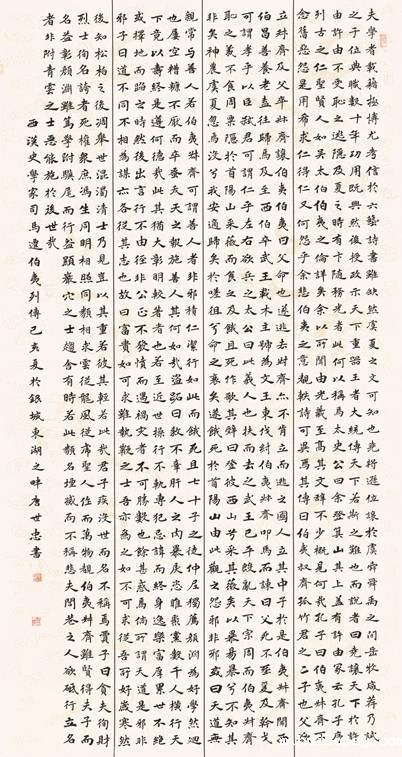 夫學者載籍極博尤考信於六藝詩書雖缺然虞夏之文可知也堯將遜位讓於虞舜舜禹之間岳牧咸薦乃試
之于位典職數十年功用既興然後授政示天下重器王者大統傳天下若斯之難也而說者曰堯讓天下於許
由許由不受恥之逃隱及夏之時有卞隨務光者此何以稱焉太史公曰余登箕山其上蓋有許由冢云孔子序
列古之仁聖賢人如吳太伯伯夷之倫詳矣余以所聞由光義至高其文辭不少概見何哉孔子曰伯夷叔齊不
念舊惡怨是用希求仁得仁又何怨乎余悲伯夷之意睹軼詩可異焉其傳曰伯夷叔齊孤竹君之二子也父欲
立叔齊及父卒叔齊讓伯夷伯夷曰父命也遂逃去叔齊亦不肯立而逃之國人立其中子於是伯夷叔齊聞西
伯昌善養老盍往歸焉及至西伯卒武王載木主號為文王東伐紂伯夷叔齊叩馬而諫曰父死不葬爰及干戈
可謂孝乎以臣弒君可謂仁乎左右欲兵之太公曰此義人也扶而去之武王已平殷亂天下宗周而伯夷叔齊
恥之義不食周粟隱於首陽山采薇而食之及餓且死作歌其辭曰登彼西山兮采其薇矣以暴易暴兮不知其
非矣神農虞夏忽焉沒兮我安適歸矣于嗟徂兮命之衰矣遂餓死於首陽山由此觀之怨邪非邪或曰天道無
親常與善人若伯夷叔齊可謂善人者非邪積仁潔行如此而餓死且七十子之徒仲尼獨薦顏淵為好學然回
也屢空糟糠不厭而卒蚤夭天之報施善人其何如哉盜蹠日殺不辜肝人之肉暴戾恣睢聚黨數千人橫行天
下竟以壽終是遵何德哉此其尤大彰明較著者也若至近世操行不軌專犯忌諱而終身逸樂富厚累世不絕
或擇地而蹈之時然後出言行不由徑非公正不發憤而遇禍災者不可勝數也余甚惑焉儻所謂天道是邪非
邪子曰道不同不相為謀亦各從其志也故曰富貴如可求雖執鞭之士吾亦為之如不可求從吾所好歲寒然
後知松柏之後凋舉世混濁清士乃見豈以其重若彼其輕若此哉君子疾沒世而名不稱焉賈子曰貪夫徇財
烈士徇名夸者死權眾庶馮生同明相照同類相求雲從龍風從虎聖人作而萬物覩伯夷叔齊雖賢得夫子而
名益彰顏淵雖篤學附驥尾而行益顯巖穴之士趨舍有時若此類名堙滅而不稱悲夫閭巷之人欲砥行立名
者非附青雲之士惡能施於後世哉
西漢史學家司馬遷伯夷列傳己亥夏於銀城東湖之畔唐世忠書